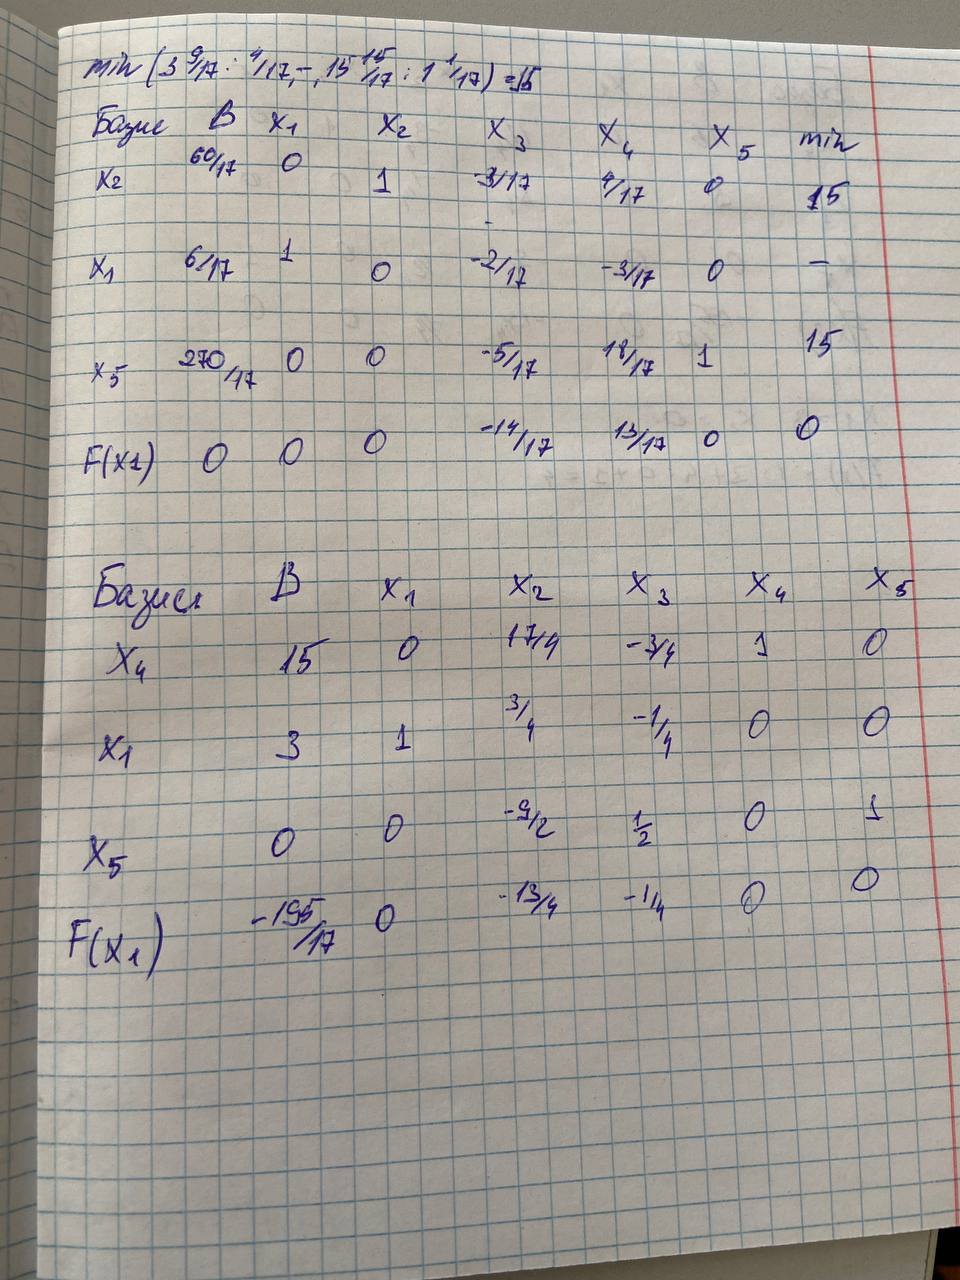 min (3 9/17 : 4/17, –, 15 15/17 : 1 1/17) = 15
Базис B x1 x2 x3 x4 x5 min
x2 60/17 0 1 -3/17 4/17 0 15
x1 6/17 1 0 -2/17 -3/17 0 –
x5 270/17 0 0 -5/17 18/17 1 15
F(x1) 0 0 0 -14/17 13/17 0 0
Базис B x1 x2 x3 x4 x5
x4 15 0 17/4 -3/4 1 0
x1 3 1 3/4 -1/4 0 0
x5 0 0 -9/2 1/2 0 1
F(x1) -195/17 0 -13/4 -1/4 0 0